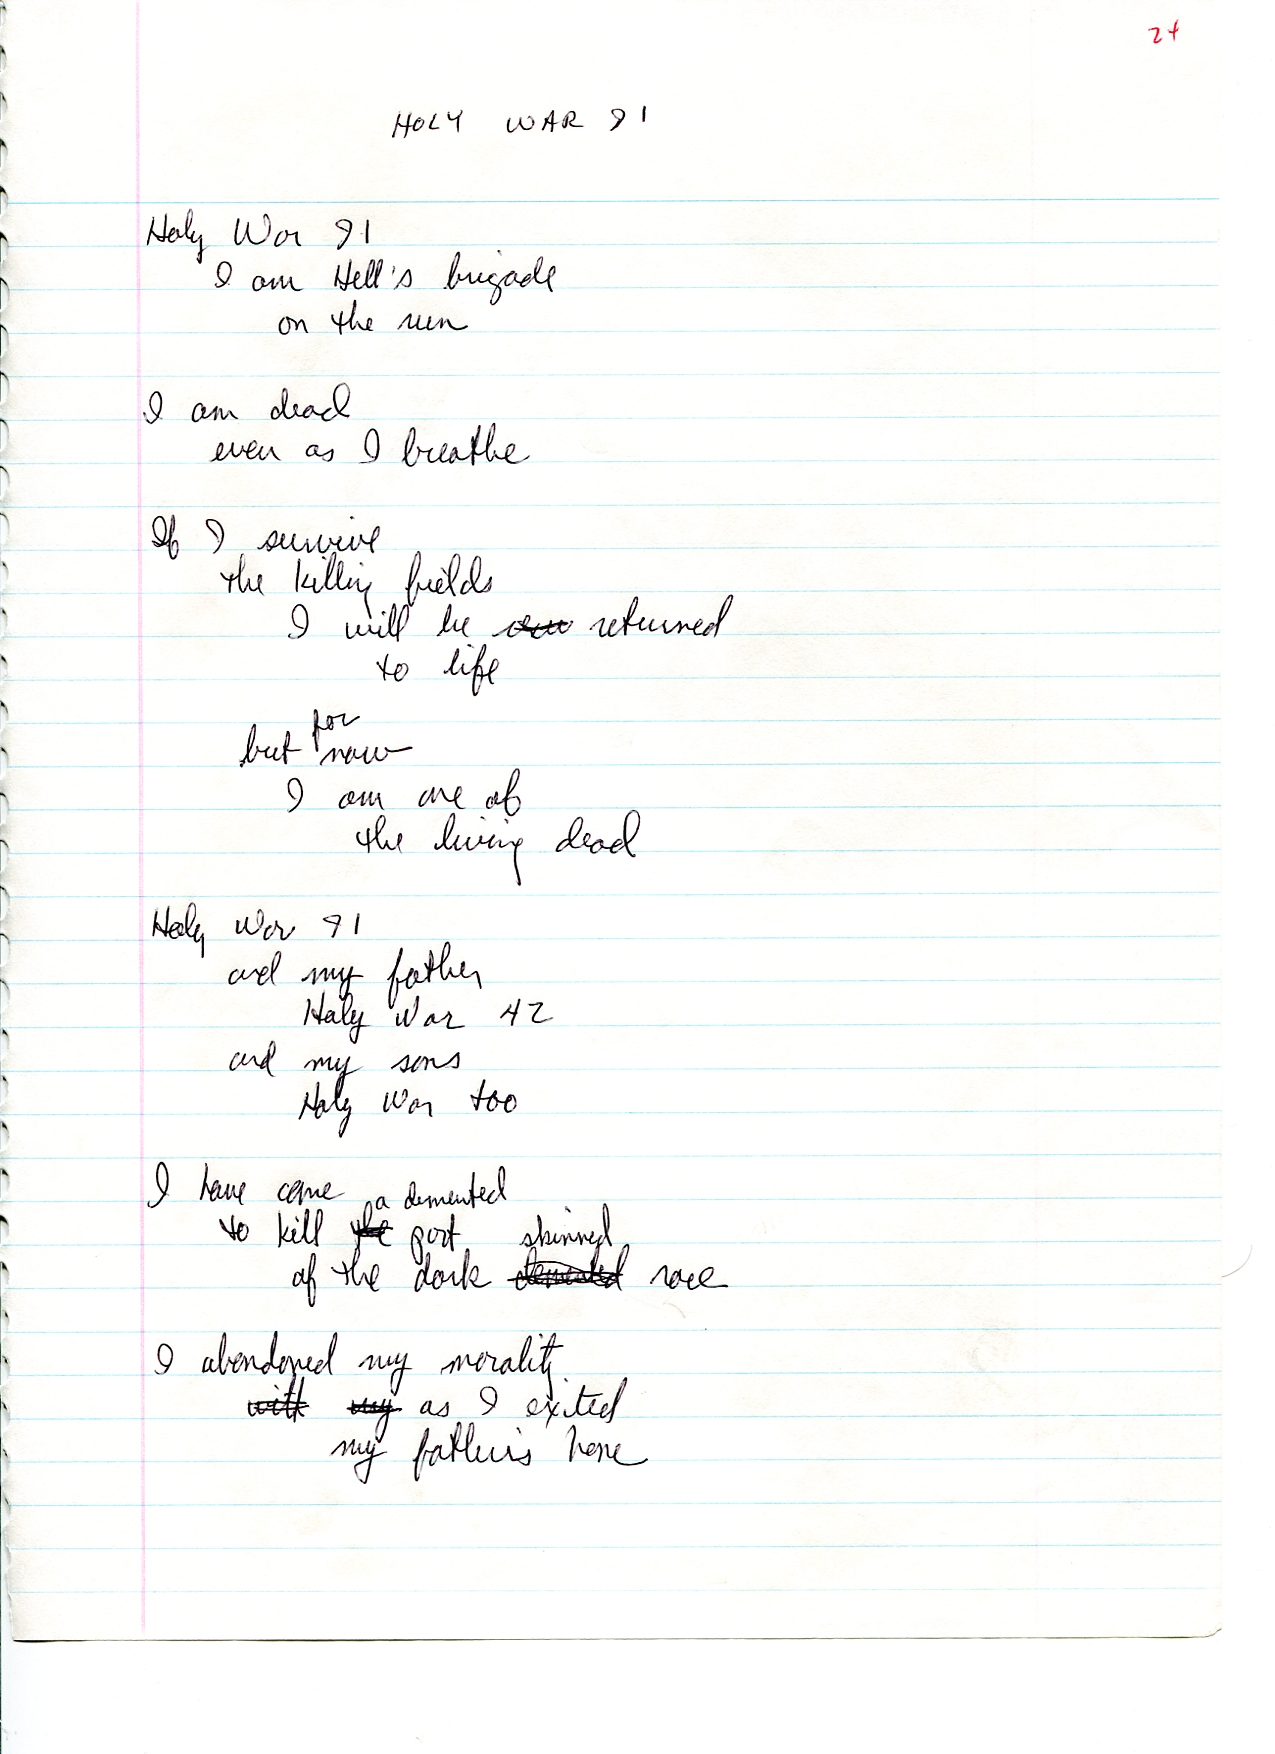 24
HOLY WAR 91
Holy War 91
I am Hell's brigade
on the run
I am dead
even as I breathe
If I survive
the killing fields
I will be returned
to life
for
but now
I am one of
the living dead
Holy War 91
and my father
Holy War 42
and my sons
Holy War too
I have come a demented
to kill the part skinned
of the dark demented race
I abandoned my morality
with my as I exited
my father's home